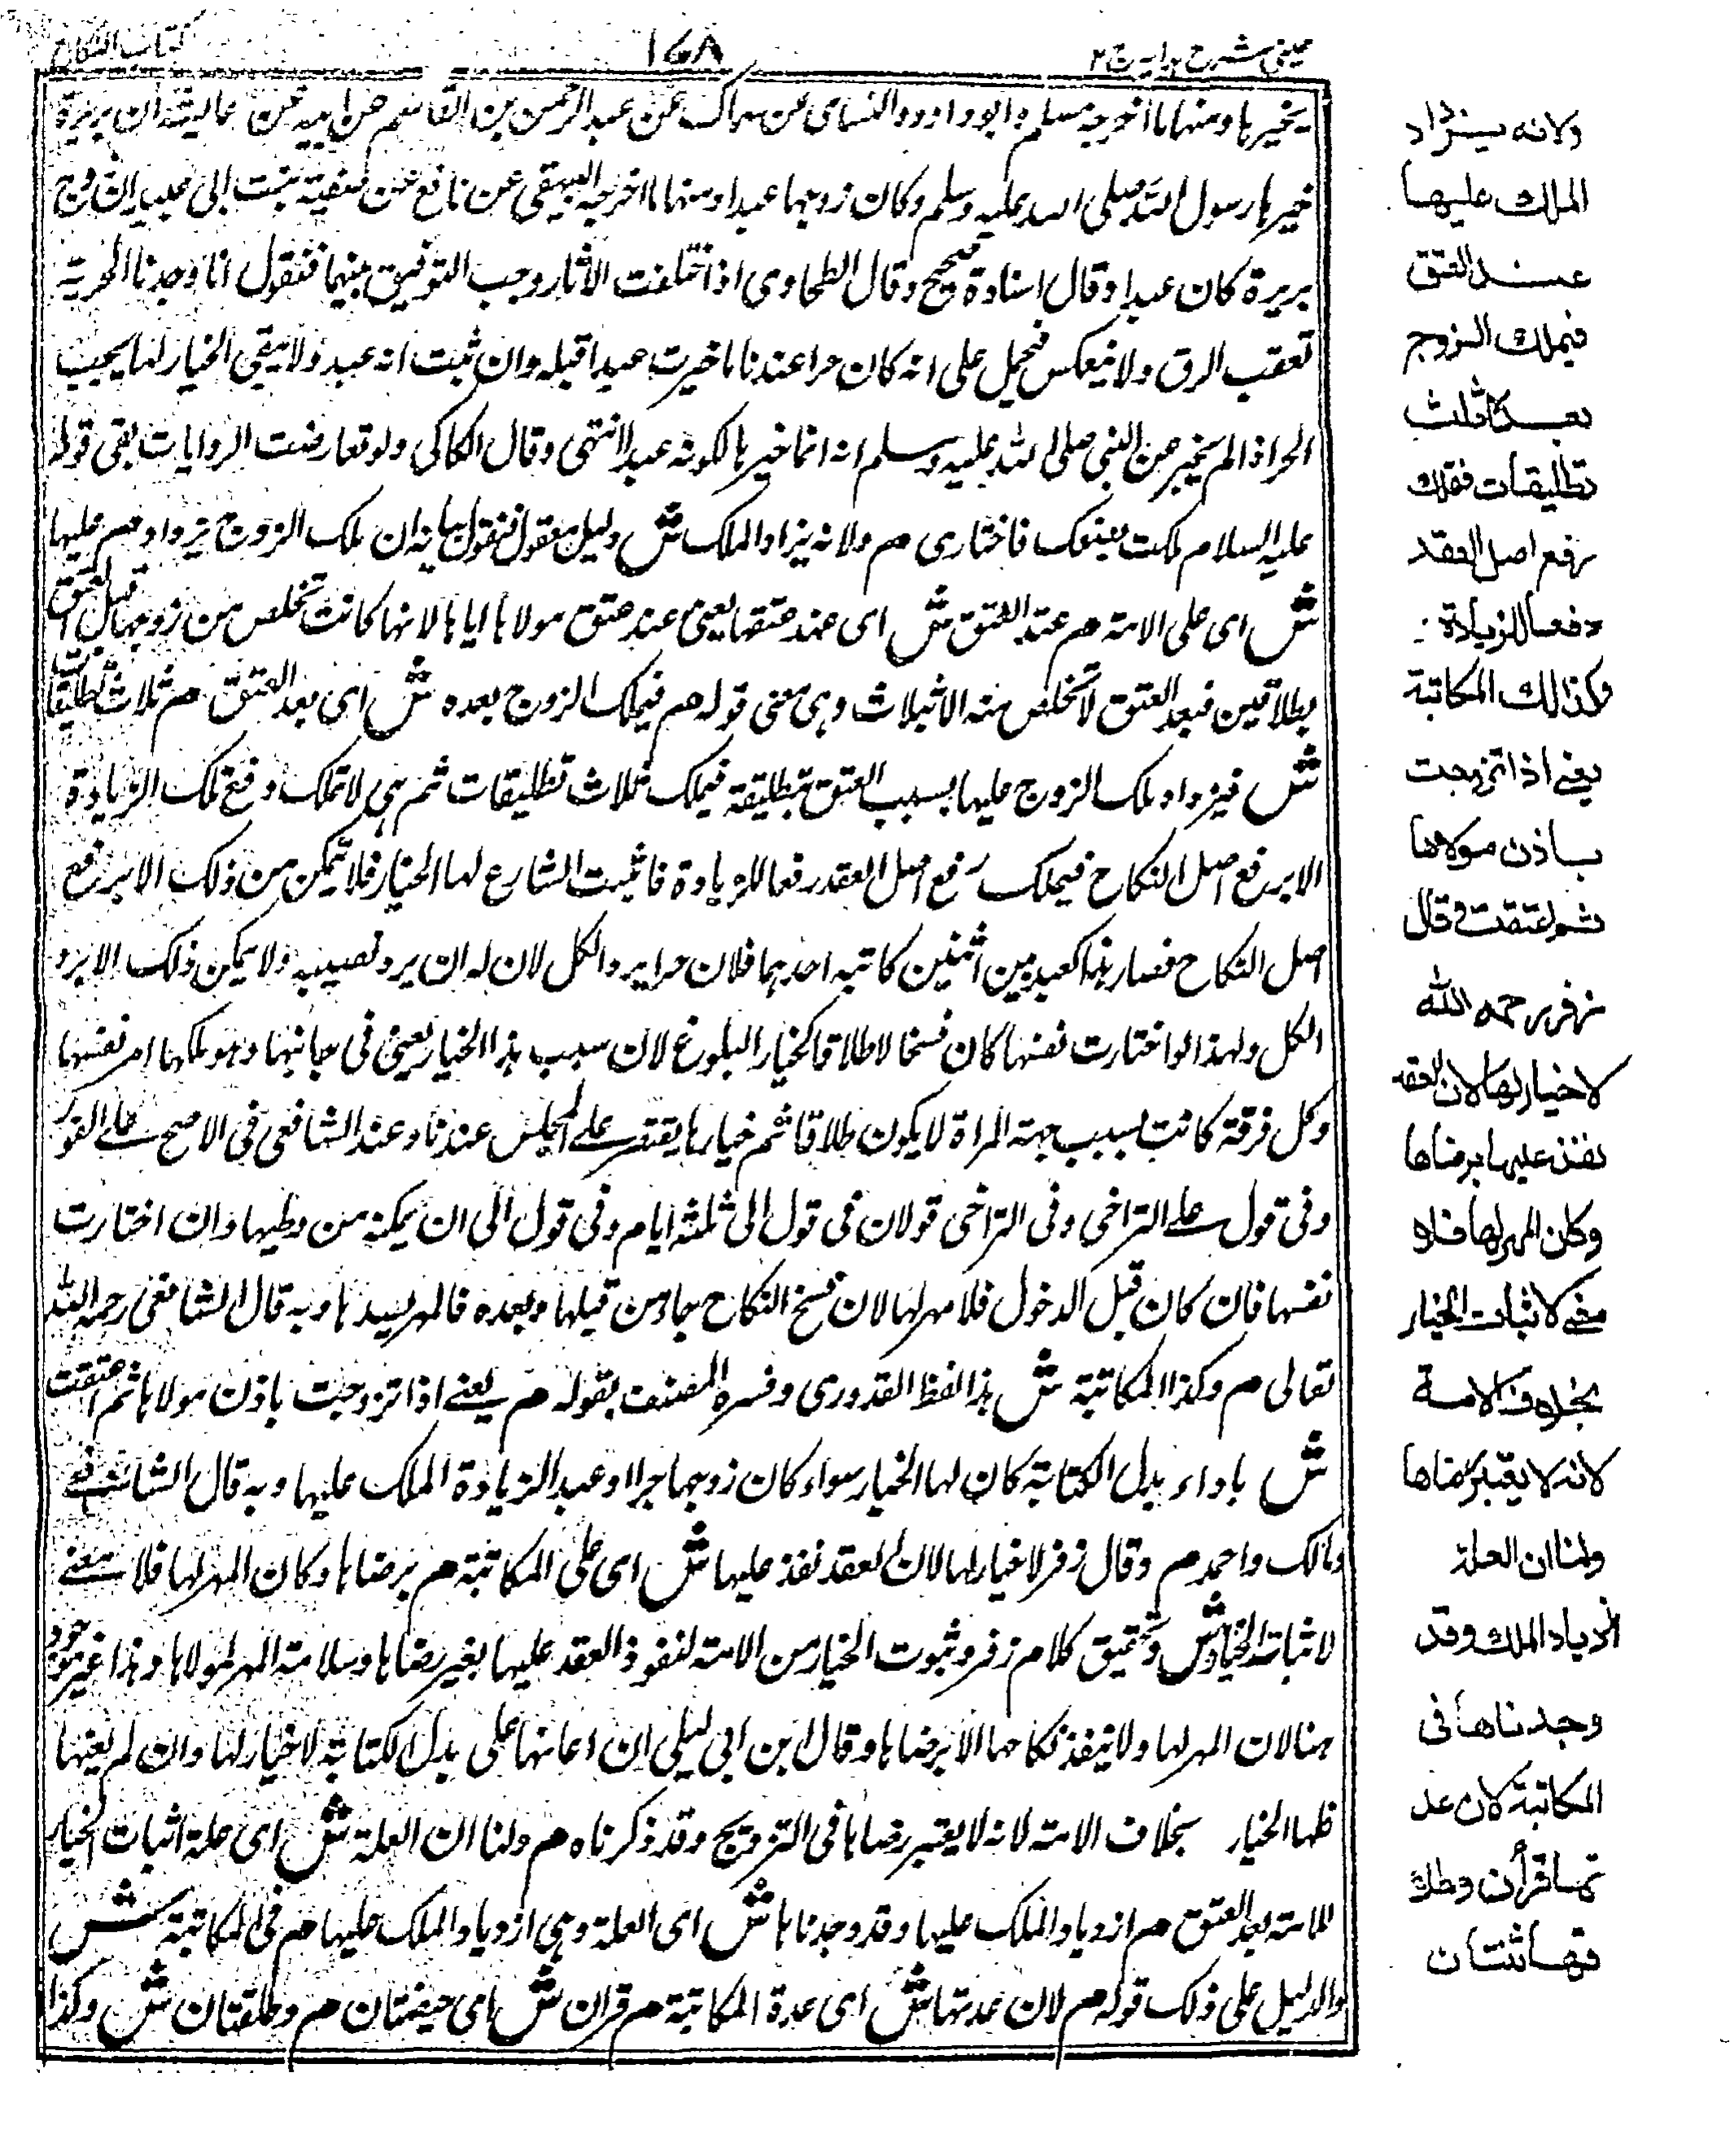 عینی شرح ہدایہ ج ۲
۱۶۸
کتاب النکاح
یخیرہا ومنہا ما اخرجہ مسلم وابو داود والنسای عن سماک عن عبد الرحمن بن القاسم عن ابیہ عن عایشۃ ان بریرۃ
خیرہا رسول اللہ صلی اللہ علیہ وسلم وکان زوجہا عبدا ومنہا ما اخرجہ البیہقی عن نافع عن صفیۃ بنت ابی عبید ان زوج
بریرۃ کان عبدا وقال اسنادہ صحیح وقال الطحاوی اذا اختلفت الاثار وجب التوفیق بینہما فنقول انا وجدنا الحریۃ
تعقب الرق ولا ینعکس فیحمل علی انہ کان حرا عندنا ما خیرت عبدا قبلہ وان ثبت انہ عبد ولا یبقی الخیار لہا یجیب
الحر اذا لم یخیر عن النبی صلی اللہ علیہ وسلم انہ انما خیرہا لکونہ عبدا انتہی وقال الکاکی ولو تعارضت الروایات بقی قولہ
علیہ السلام ملکت بضعک فاختاری م ولانہ یزداد الملک ش دلیل معقول فنقول بیانہ ان ملک الزوج یزداد م علیہا
ش ای علی الامۃ م عند العتق ش ای عند عتقہا یعنی عند عتق مولاہا ایاہا لانہا کانت تخلص من زوجہا قبل العتق
بطلاقین فبعد العتق لا تخلص منہ الا بثلاث وہی معنی قولہ م فیملک الزوج بعدہ ش ای بعد العتق م ثلاث تطلیقات
ش فیزداد ملک الزوج علیہا بسبب العتق بتطلیقۃ فیملک ثلاث تطلیقات ثم ہی لا تملک دفع تلک الزیادۃ
الا برفع اصل النکاح فیملک رفع اصل العقد رفعا للزیادۃ فاثبت الشارع لہا الخیار فلا تمکن من ذلک الا برفع
اصل النکاح فصار ہذا کعبد بین اثنین کاتبہ احدہما فلان حر ایرد الکل لان لہ ان یرد نصیبہ ولا یمکن ذلک الا برد
الکل ولہذا لو اختارت نفسہا کان فسخا لا طلاقا کخیار البلوغ لان سبب ہذا الخیار یعنی فی جانبہا وہو ملکہا امر نفسہا
وکل فرقۃ کانت بسبب جہۃ المراۃ لا یکون طلاقا ثم خیارہا یقتصر علے المجلس عندنا وعند الشافعی فی الاصح علے الفور
وفی قول علے التراخی وفی التراخی قولان فی قول الی ثلثۃ ایام وفی قول الی ان یمکنہ من وطیہا وان اختارت
نفسہا فان کان قبل الدخول فلا مہر لہا لان فسخ النکاح جاء من قبلہا وبعدہ فالمہر لسیدہا وبہ قال الشافعی رحمہ اللہ
تعالی م وکذا المکاتبۃ ش ہذا لفظ القدوری وفسرہ المصنف بقولہ م یعنے اذا تزوجت باذن مولاہا ثم اعتقت
ش باداء بدل الکتابۃ کان لہا الخیار سواء کان زوجہا حرا او عبدا لزیادۃ الملک علیہا وبہ قال الشافعے
ومالک واحمد م وقال زفر لا خیار لہا لان العقد نفذ علیہا ش ای علی المکاتبۃ م برضاہا وکان المہر لہا فلا معنے
لاثبات الخیار ش وتحقیق کلام زفر وثبوت الخیار من الامۃ لنفوذ العقد علیہا بغیر رضاہا وسلامۃ المہر لمولاہا وہذا غیر موجود
ہنا لان المہر لہا ولا ینفذ نکاحہا الا برضاہا وقال ابن ابی لیلی ان اعانہا علی بدل الکتابۃ لا خیار لہا وان لم یعنہا
فلہا الخیار بخلاف الامۃ لانہ لا یعتبر رضاہا فی التزویج وقد ذکرناہ م ولنا ان العلۃ ش ای علۃ اثبات الخیار
للامۃ بعد العتق م ازدیاد الملک علیہا وقد وجدناہا ش ای العلۃ وہی ازدیاد الملک علیہا م فی المکاتبۃ ش
والدلیل علی ذلک قولہ م لان عدتہا ش ای عدۃ المکاتبۃ م قران ش ای حیضتان م وطلقتان ش وکذا
ولانه یزداد
الملك علیها
عند العتق
فیملك الزوج
بعده ثلث
تطلیقات فتملك
رفع اصل العقد
دفعا للزیادة
وكذالك المكاتبة
یعنے اذا تزوجت
باذن مولاها
ثم اعتقت وقال
زفر رحمه الله
لا خیار لها لان العقد
نفذ علیها برضاها
وكان المهر لها فلا
معنے لاثبات الخیار
بخلاف الامة
لانه لا یعتبر رضاها
ولنا ان العلة
ازدیاد الملك وقد
وجدناها فی
المكاتبة لان عد
تها قرآن وطلا
قها ثنتان